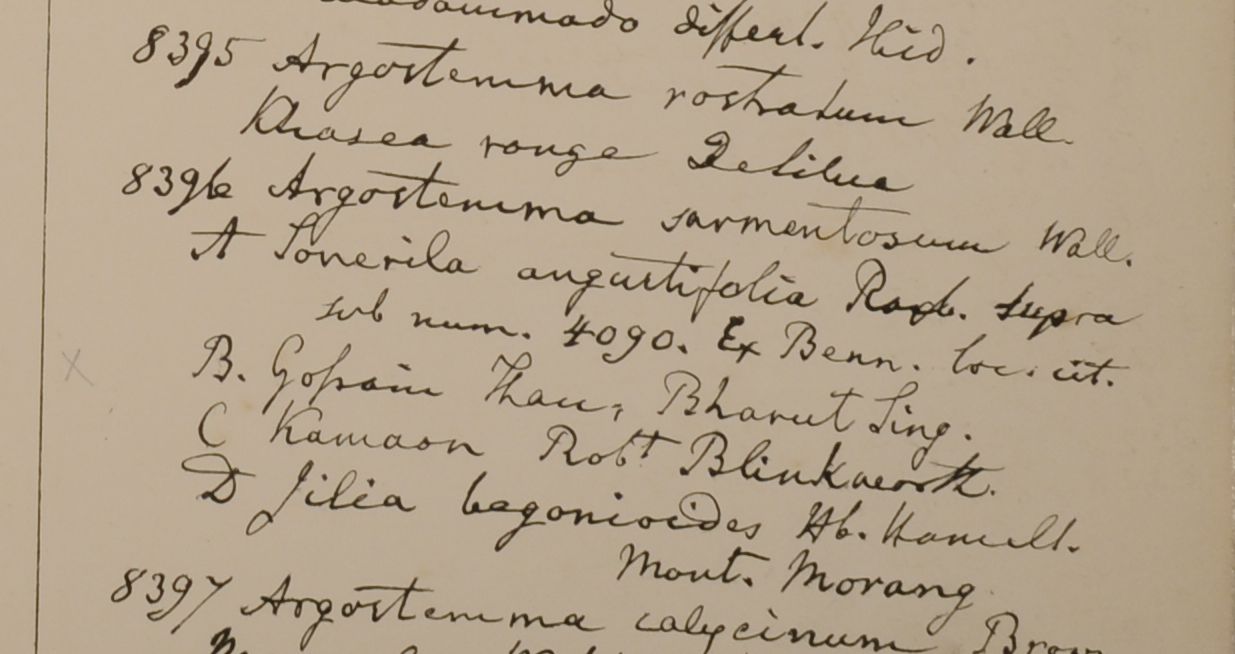 differt. Hid.
8395 Argostemma rostratum Wall.
Khasea range De Silva
8396 Argostemma sarmentosum Wall.
A Sonerila angustifolia Roxb. supra
sub num. 4090. Ex Benn. loc. cit.
B. Gofsain Than, Bharut Sing.
C Kamaon Robt Blinkworth.
D Jilia begonioides Hb. Hamilt.
Mont. Morang
8397 Argostemma calycinum